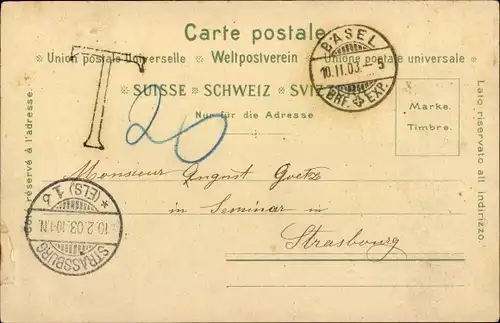 Carte postale.
Union postale Universelle ❖ Weltpostverein ❖ Unione postale universale
SUISSE ❖ SCHWEIZ ❖ SVIZ
Nur für die Adresse
T
20
BASEL
10.11.03.–9
BRF. EXP.
Marke.
Timbre.
Côté réservé à l'adresse.
Lato riservato all' indirizzo.
Monsieur August Goetz
in Seminar in
Strasbourg
STRASSBURG
10.2.03.10-11N.
*(ELS) 1.b